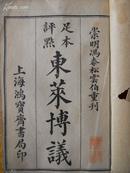 崇明馮泰松雲伯重刊
足本
評點
東萊博議
上海鴻寶齋書局印